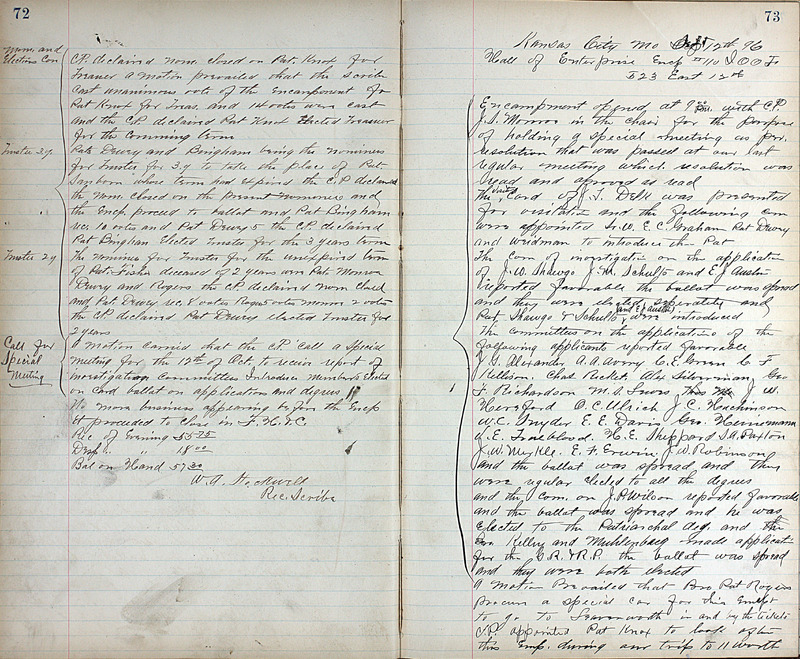 72
Nom. and
Election Con
C.P. declared nom. closed on Pat. Knox for
Treasurer a motion prevailed that the scribe
cast unanimous vote of the Encampment for
Pat Knox for Treas. and 14 votes were cast
and the C.P. declared Pat Knox Elected Treasurer
for the comming term
Trustee 3 y.
Pats Drury and Bingham being the nominees
for Trustee for 3 y to take the place of Pat.
Sanborn whose term had expired the C.P. declared
the nom. closed on the present nominees and
the Encp. proceed to ballot and Pat Bingham
rec. 10 votes and Pat Drury 5 the C.P. declared
Pat Bingham Elected Trustee for the 3 years term
Trustee 2 y
The nominees for Trustee for the unexpired term
of Pat. Fisher deceased of 2 years were Pats Monroe
Drury and Rogers the C.P. declared nom closed
and Pat Drury rec. 8 votes Rogers votes Monroe 2 votes
the C.P. declared Pat Drury elected Trustee for
2 years
Call for
Special
Meeting
A motion carried that the C.P. call a Special
meeting for the 12th of Oct. to recive report of
investigating committees Introduce members elected
on card ballot on application and degrees
No more business appearing before the Encp
it proceeded to close in F. H. & C.
Rec of Evening 55 75
18 00
Bal on Hand 57
Rec. Scribe
73
Kansas City Mo 12th 96
Hall of Enterprise Encp # 110 I O O F
523 East 12th
Encampment opened at 9 P.M. with C.P.
J. S. Monroe in the chair for the purpose
of holding a special meeting as per.
resolution that was passed at our last
regular meeting which resolution was
read and aproved as read
The Visit Card of J. T. Dell was presented
for visitation and the following com
were appointed Sr. W. E. C. Graham Pat Drury
and Weidman to introduce the Pat
The Com of investigation on the application
of J. W. Shawgo J. M. Schults and E. J. Austin
reported favorable the ballot was spread
and they were elected seperately and
Pat. Shawgo & Schults and E J Austin were introduced
The committees on the applications of the
following applicants reported favorable
J. G. Alexander A. A. Avory C. E. Green C. F.
Chas Ricket. Alex Silverman, Geo
F. Richardson M. S. J. W.
Hereford O. C. Ulrich J. C. Hutchinson
W. C. Snyder E. E. Davis Geo. Heinemann
L. E. Trueblood. H. E. Sheppard S. A. Paxton
J. W. E. F. Erwin, J. W. Robinson
and the ballot was spread and they
were regular elected to all the degrees
and the Com. on J. P. Wilson reported favorable
and the ballot was spread and he was
Elected to the Patriarchal deg. and the
Kelley and Muhlenberg made applicati
for the G. R. & R. P. the ballot was spread
and they were both elected
A motion Prevailed that Pat Rogers
procure a special car for this Encpt
to go to Leavenworth in and by the tickets
C.P. appointed Pat Knox to look after
this Encp. during our trip to worth